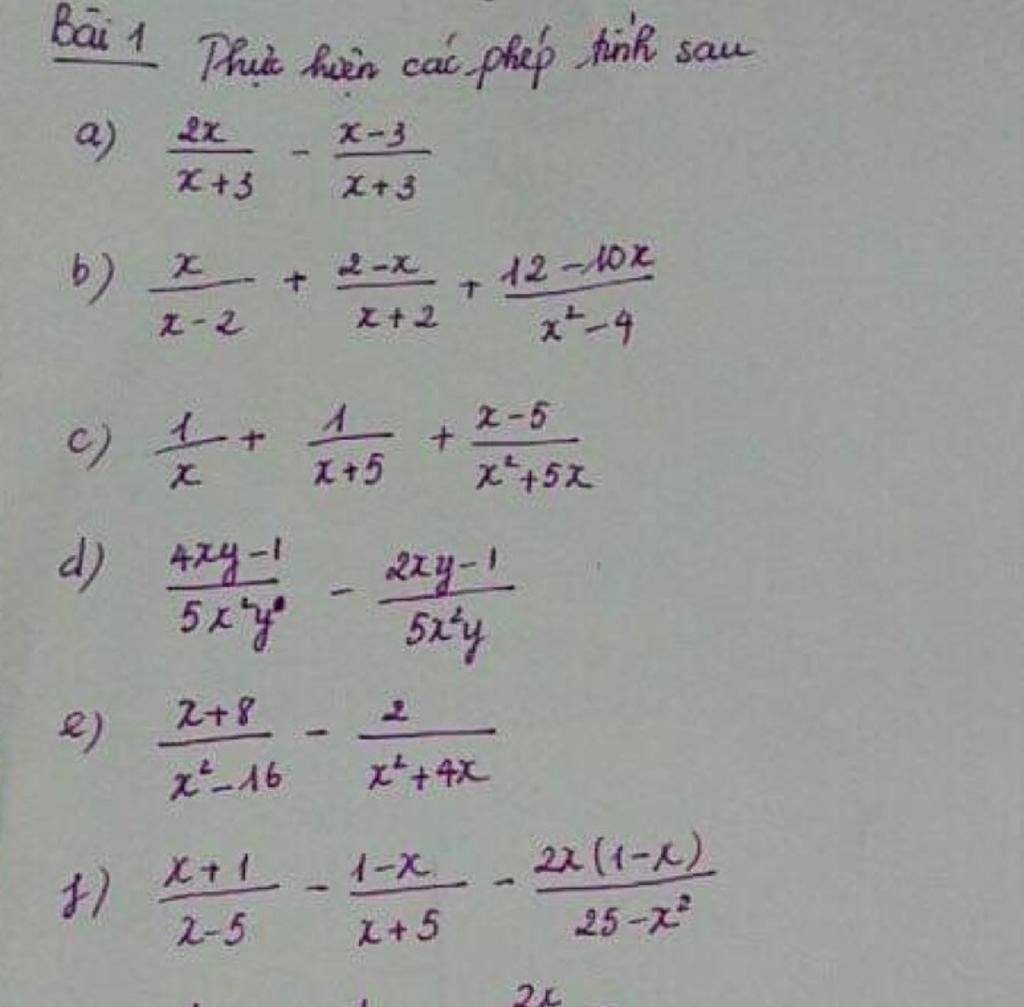 Bài 1 Thực hiện các phép tính sau
a) \frac{2x}{x+3} - \frac{x-3}{x+3}
b) \frac{x}{x-2} + \frac{2-x}{x+2} + \frac{12-10x}{x²-4}
c) \frac{1}{x} + \frac{1}{x+5} + \frac{x-5}{x²+5x}
d) \frac{4xy-1}{5x²y} - \frac{2xy-1}{5x²y}
e) \frac{x+8}{x²-16} - \frac{2}{x²+4x}
f) \frac{x+1}{x-5} - \frac{1-x}{x+5} - \frac{2x(1-x)}{25-x²}
2x